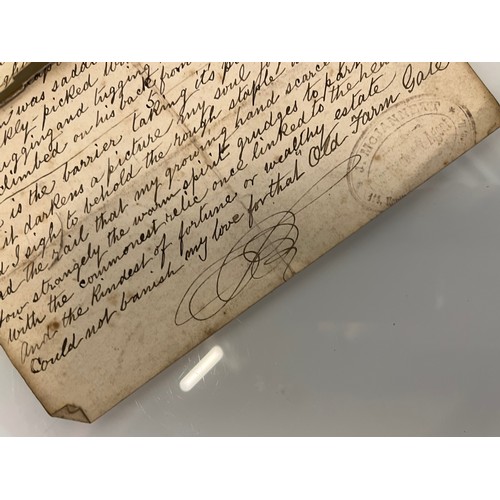 was saddl
kly-picked
ugging and tugging
climbed on his back from
5
is the barrier taking its p
it darkens a picture my soul
d I sigh to behold the rough staple
ad the rail that my growing hand scarce
How strangely the worm spirit grudges to part
With the commonest relic once linked to the he
And the kindest of fortune or wealthy estate
Could not banish any love for that Old Farm Gate